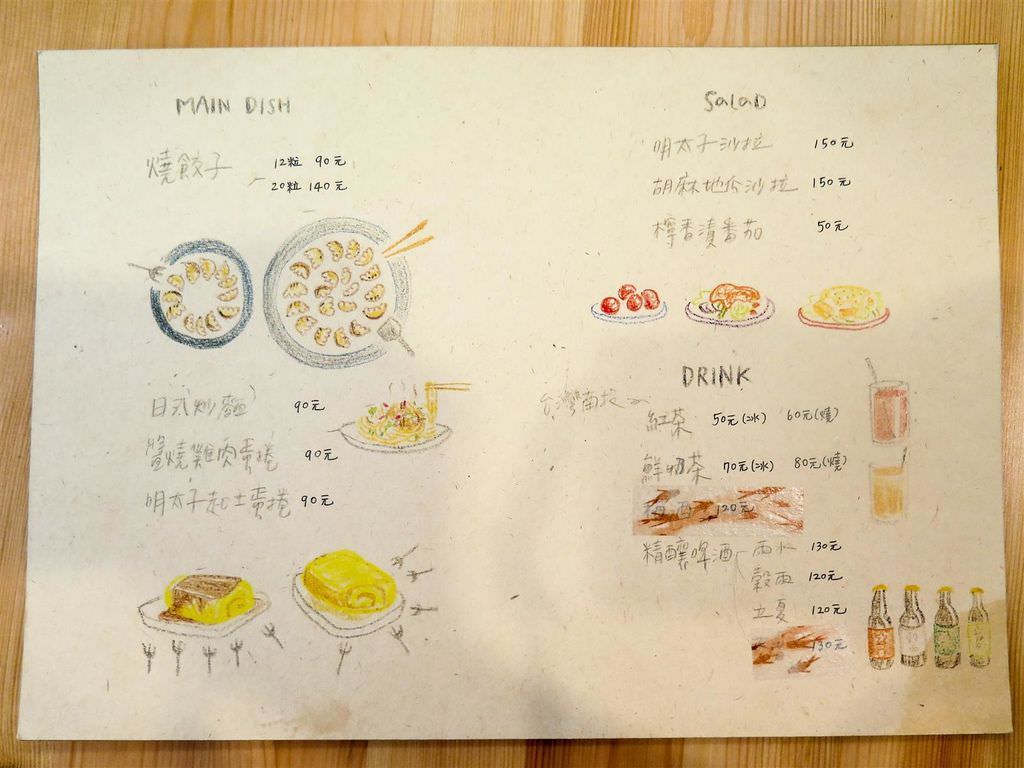 MAIN DISH
燒餃子 12粒 90元
20粒 140元
日式炒麵 90元
醬燒雞肉蛋捲 90元
明太子起士蛋捲 90元
SALAD
明太子沙拉 150元
胡麻地瓜沙拉 150元
檸香漬番茄 50元
DRINK
台灣南投
紅茶 50元(冰) 60元(燒)
鮮奶茶 70元(冰) 80元(燒)
梅酒 120元
精釀啤酒 雨水 130元
穀雨 120元
立夏 120元
130元